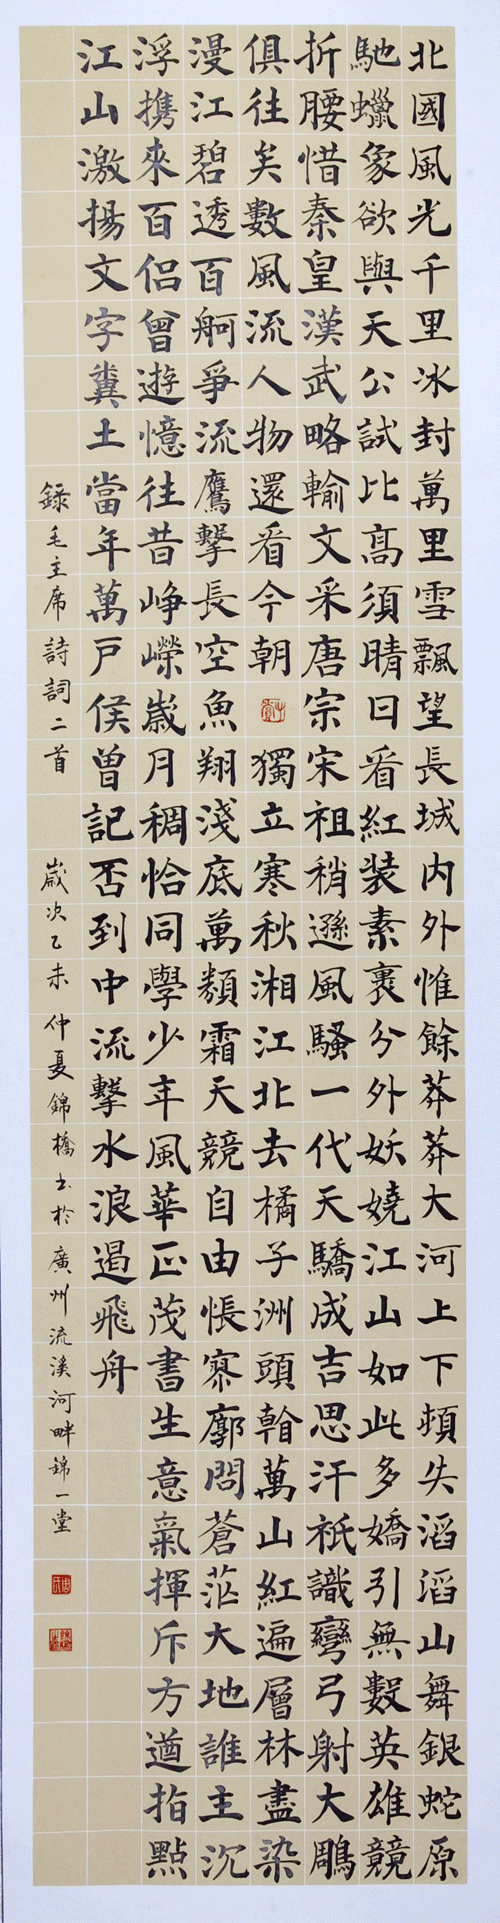 北國風光千里冰封萬里雪飄望長城内外惟餘莽莽大河上下頓失滔滔山舞銀蛇原
馳蠟象欲與天公試比高須晴日看紅装素裹分外妖嬈江山如此多嬌引無數英雄競
折腰惜秦皇漢武略輸文采唐宗宋祖稍遜風騷一代天驕成吉思汗祇識彎弓射大鵰
俱往矣數風流人物還看今朝 獨立寒秋湘江北去橘子洲頭看萬山紅遍層林盡染
漫江碧透百舸爭流鷹擊長空魚翔淺底萬類霜天競自由悵寥廓問蒼茫大地誰主沉
浮携來百侣曾遊憶往昔崢嶸歲月稠恰同學少年風華正茂書生意氣揮斥方遒指點
江山激揚文字糞土當年萬戶侯曾記否到中流擊水浪遏飛舟
錄毛主席詩詞二首 歲次乙未仲夏錦橋書於廣州流溪河畔錦一堂